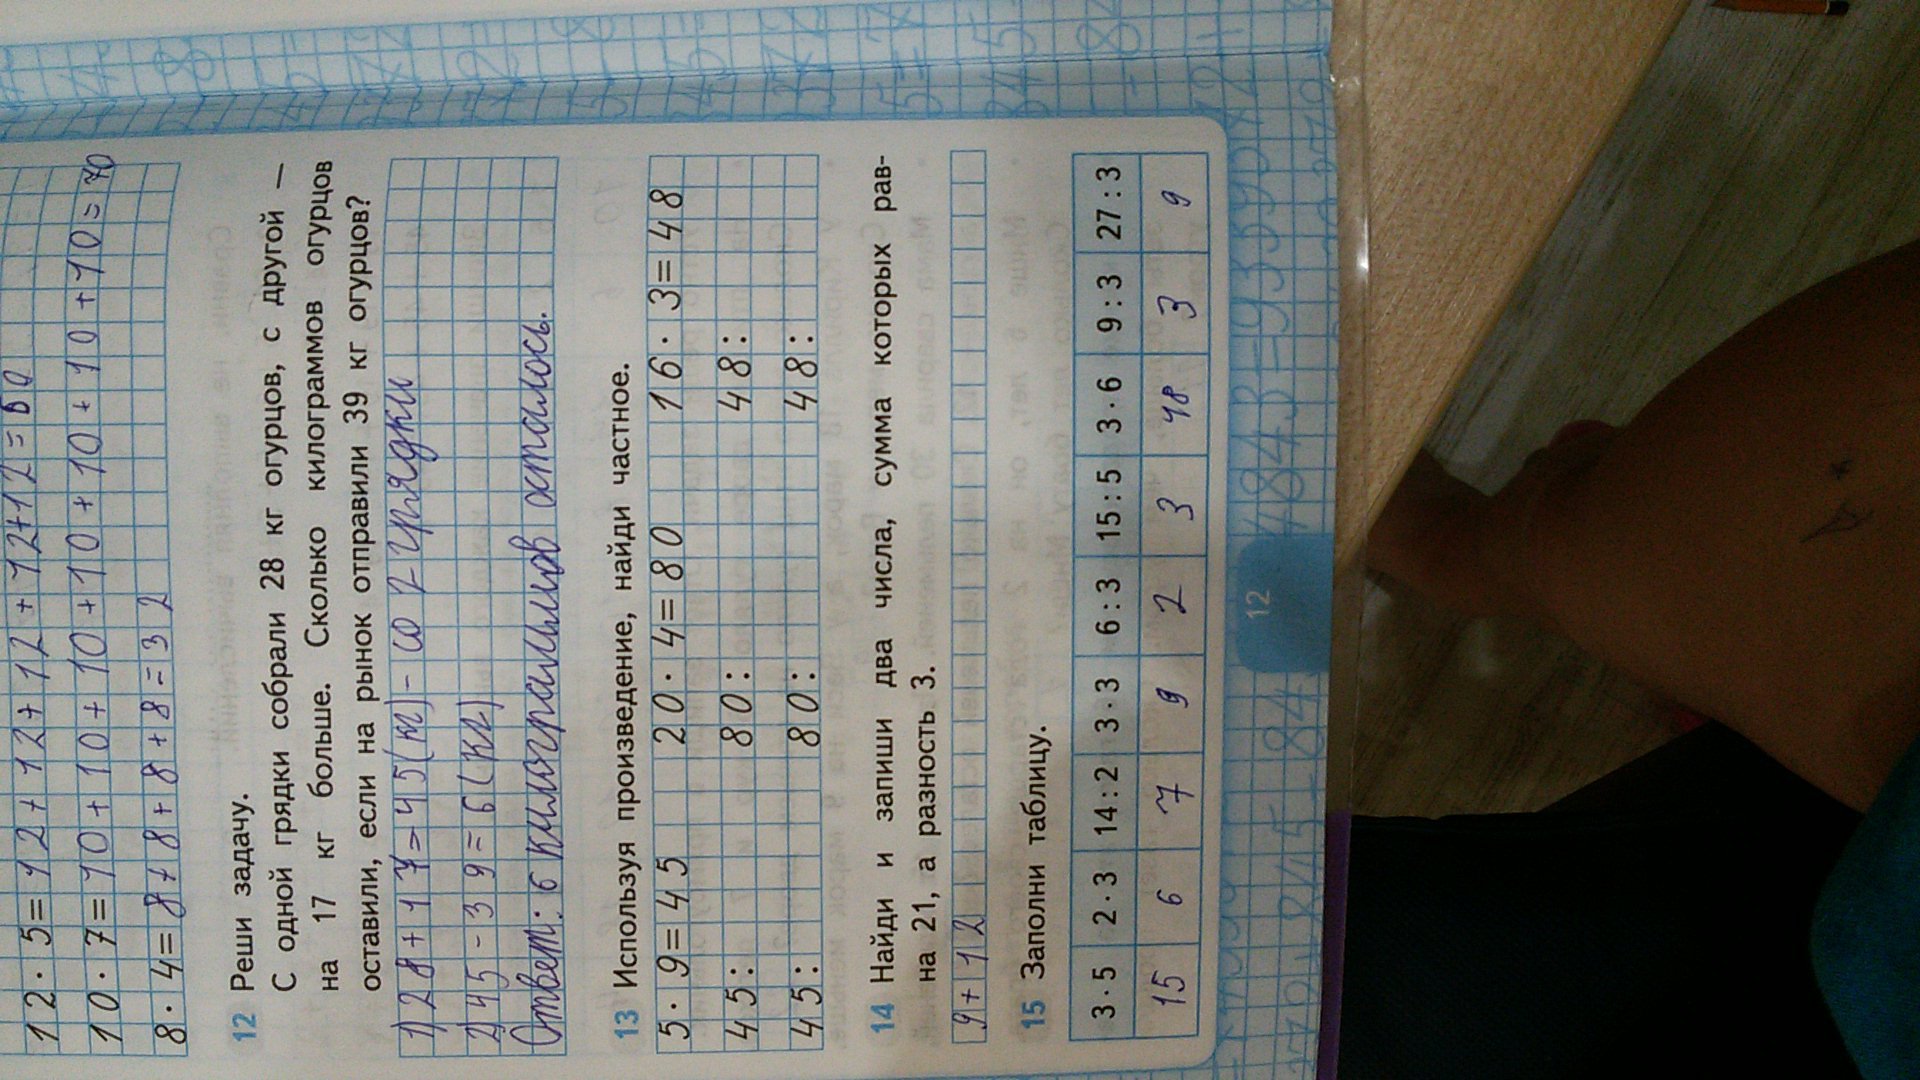 12·5=12+12+12+12+12=60
10·7=10+10+10+10+10+10+10=70
8·4=8+8+8+8=32
12 Реши задачу.
С одной грядки собрали 28 кг огурцов, с другой —
на 17 кг больше. Сколько килограммов огурцов
оставили, если на рынок отправили 39 кг огурцов?
1) 28+17=45(кг)- со 2 грядки
2) 45-39=6(кг)
Ответ: 6 килограммов осталось.
13 Используя произведение, найди частное.
5·9=45 20·4=80 16·3=48
45: 80: 48:
45: 80: 48:
14 Найди и запиши два числа, сумма которых рав-
на 21, а разность 3.
9+12
15 Заполни таблицу.
3·5 2·3 14:2 3·3 6:3 15:5 3·6 9:3 27:3
15 6 7 9 2 3 18 3 9
12